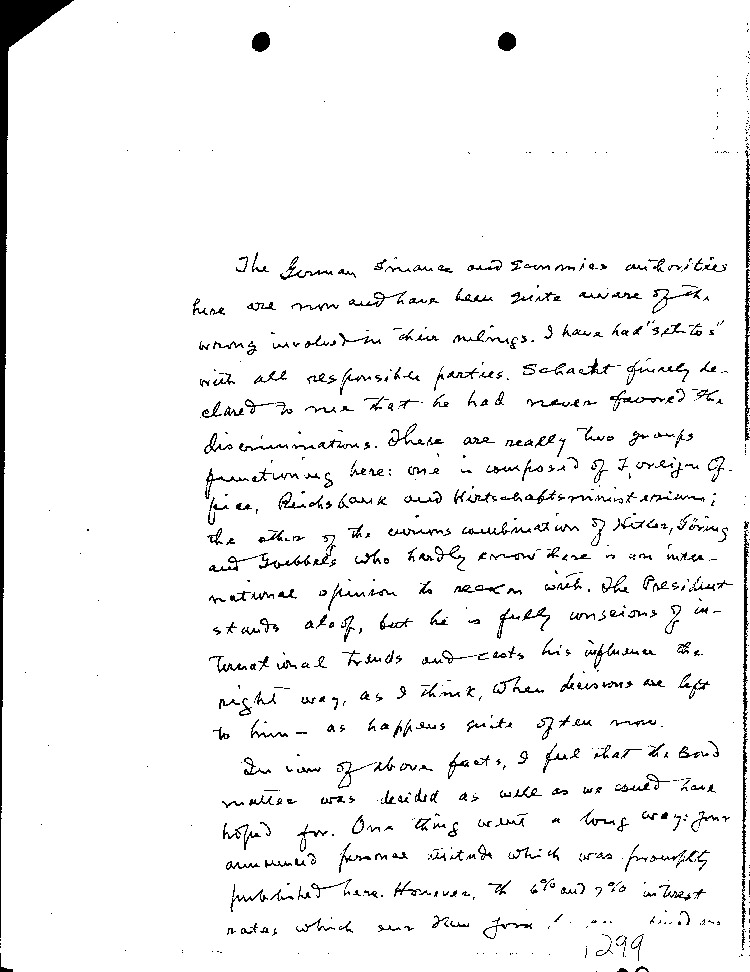 The German Finance and Economics authorities
here are now and have been quite aware of the
wrong involved in their rulings. I have had "set-to's"
with all responsible parties. Schacht finally de-
clared to me that he had never favored the
discriminations. There are really two groups
functioning here: one is composed of Foreign Of-
fice, Reichsbank and Wirtschaftsministerium;
the other of the curious combination of Hitler, Göring
and Goebbels who hardly know there is an inter-
national opinion to reckon with. The President
stands aloof, but he is fully conscious of in-
ternational trends and casts his influence the
right way, as I think, when decisions are left
to him – as happens quite often now.
In view of above facts, I feel that the Bond
matter was decided as well as we could have
hoped for. One thing went a long way: your
announced personal attitude which was promptly
published here. However, th 6% and 7% interest
rates which our New York
1299